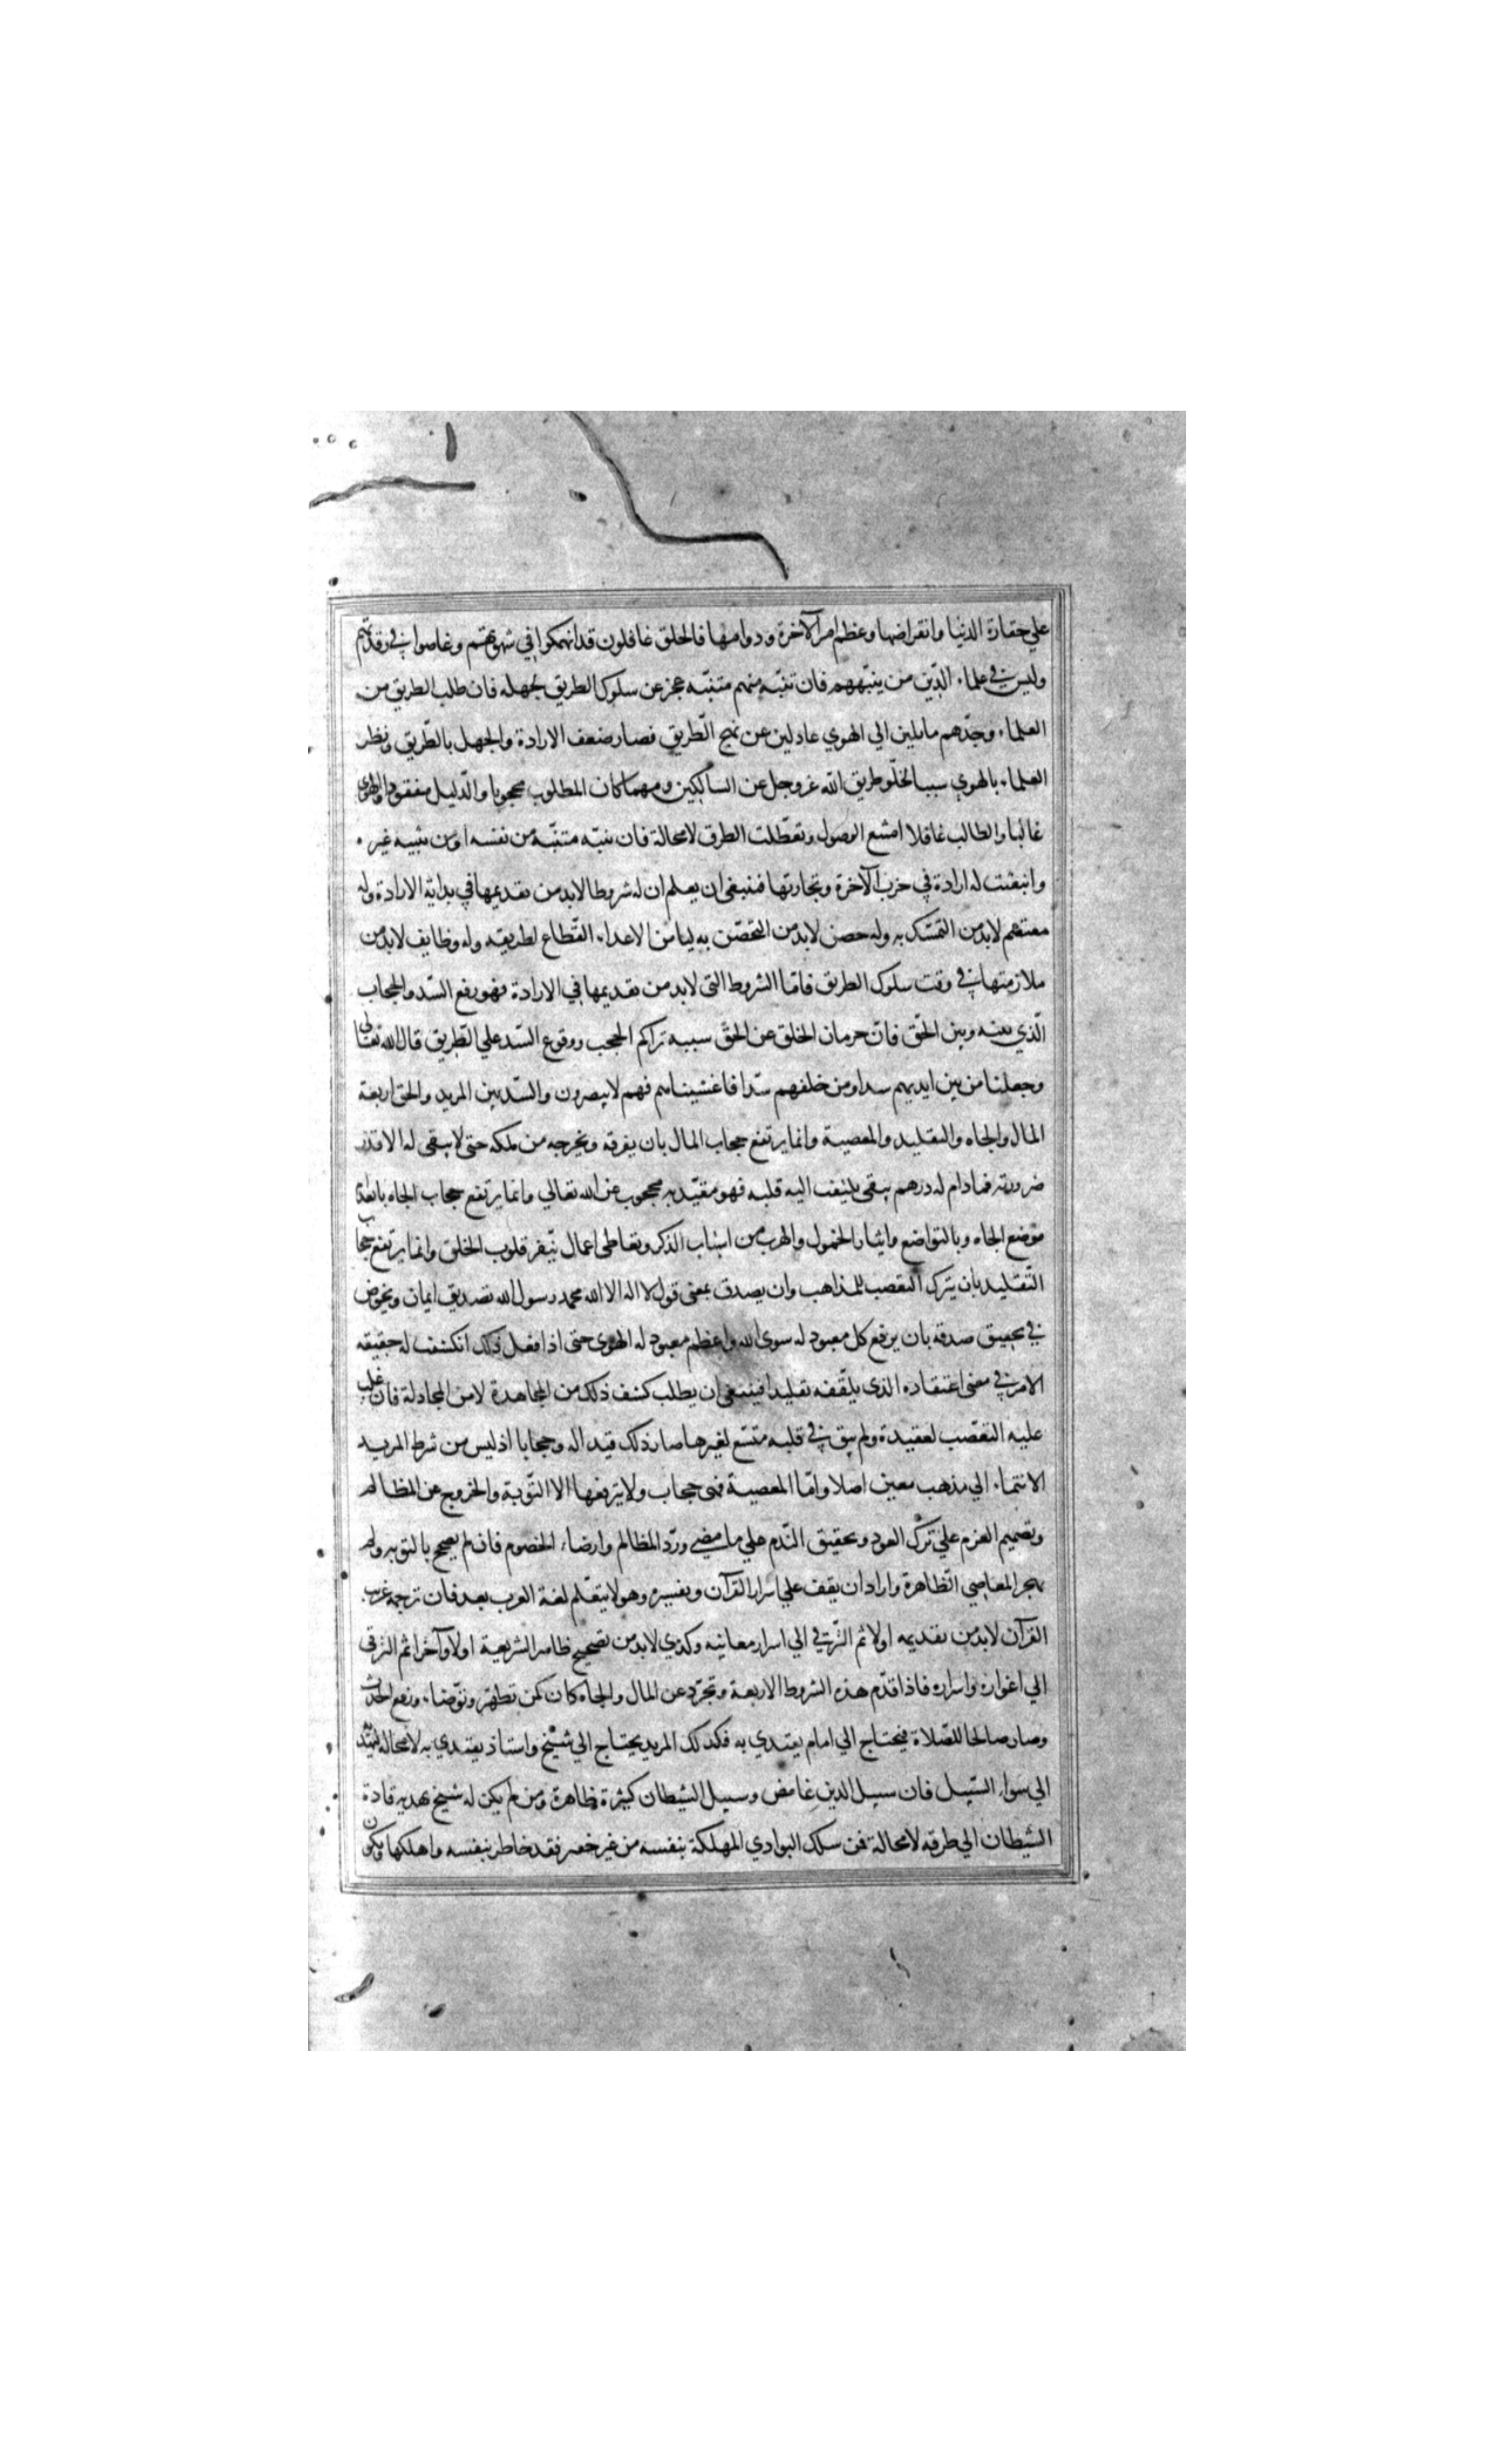 علي حقارة الدنيا وانقراضها وعظم امر الآخرة ودوامها فالخلق غافلون قد انهمكوا في شهوتهم وغاصوا في رقدتهم
وليس في علماء الدّين من ينبّههم فان تنبّه منهم متنبّه عجز عن سلوك الطريق لجهله فان طلب الطريق من
العلماء وجدّهم مايلين الي الهوي عادلين عن نهج الطّريق فصار ضعف الارادة والجهل بالطّريق ونطر
العلماء بالهوي سببا لخلّو طريق الله عز وجل عن السالكين ومهما كان المطلوب محجوبا والدّليل مفقودا والهوي
غالبا والطالب غافلا امتنع الوصول وتعطّلت الطرق لا محالة فان تنبّه متنبّه من نفسه او من تنبيه غيره
وانبعثت له ارادة في حرث الآخرة وتجارتها فينبغي ان يعلم ان له شروطا لابد من تقديمها في بداية الارادة وله
معتصم لابد من التمسّك به وله حصن لابد من التحصّن به ليامن الاعداء القطّاع لطريقه وله وظايف لابد من
ملازمتها في وقت سلوك الطريق فامّا الشروط التي لابد من تقديمها في الارادة فهو رفع السّد والحجاب
الّذي بينه وبين الحّق فانّ حرمان الخلق عن الحقّ سببه تراكم الحجب ووقوع السّد علي الطّريق قال الله تعالي
وجعلنا من بين ايديهم سدا ومن خلفهم سّدا فاغشيناهم فهم لا يبصرون والسّد بين المريد والحق اربعة
المال والجاه والتقليد والمعصية وانما يرتفع حجاب المال بان يفرقه ويخرجه من ملكه حتى لا يبقى له الا قدر
ضرورته فمادام له درهم يبقى يلتفت اليه قلبه فهو مقيّد به محجوب عن الله تعالي وانما يرتفع حجاب الجاه بالبعد عن
موضع الجاه وبالتواضع وايثار الخمول والهرب من اسباب الذكر وتعاطي اعمال تنّفر قلوب الخلق وانما يرتفع حجاب
التّقليد بان يترك التعصب للمذاهب وان يصدق بمعنى قول لا اله الا الله محمد رسول الله تصديق ايمان ويخوض
في تحقيق صدقه بان يرفع كل معبود له سوى الله واعظم معبود له الهوى حتى اذا فعل ذلك انكشف له حقيقه
الامر في معنى اعتقاده الذي يلقّفه تقليدا فينبغي ان يطلب كشف ذلك من المجاهدة لا من المجادلة فان غلب
عليه التعصّب لعقيدة ولم يبق في قلبه متسّع لغيرها صار ذلك قيدا له وحجابا اذ ليس من شرط المريد
الانتماء الي مذهب معين اصلا وامّا المعصية فهى حجاب ولا يرفعها الا التّوبة والخروج عن المظالم
وتصميم العزم علي ترك العود وتحقيق النّدم علي ما مضي وردّ المظالم وارضاء الخصوم فان لم يصح بالتوبه ولم
يهجر المعاصي الظّاهرة واراد ان يقف علي اسرار القرآن وتفسيره وهو لا يتعّلم لغة العرب بعد فان ترجمة عربية
القرآن لابد من تقديمه اولا ثم التّرقي الي اسرار معانيه وكذي لابد من تصحيح ظاهر الشريعة اولا وآخرا ثم الترقي
الي اغواره واسراره فاذا قدّم هذه الشروط الاربعة وتجرّد عن المال والجاه كان كمن تطهّر وتوّضاء ورفع الحدث
وصار صالحا للصّلاة فيحتاج الي امام يقتدي به فكذلك المريد يحتاج الي شيخ واستاذ يقتدي به لا محاله ليهديه
الي سواء السّبيل فان سبيل الدين غامض وسبيل الشيطان كثيرة ظاهرة ومن لم يكن له شيخ يهديه قاده
الشيطان الي طرقه لا محالة فمن سلك البوادي المهلكة بنفسه من غير خفير فقد خاطر بنفسه واهلكها ويكون